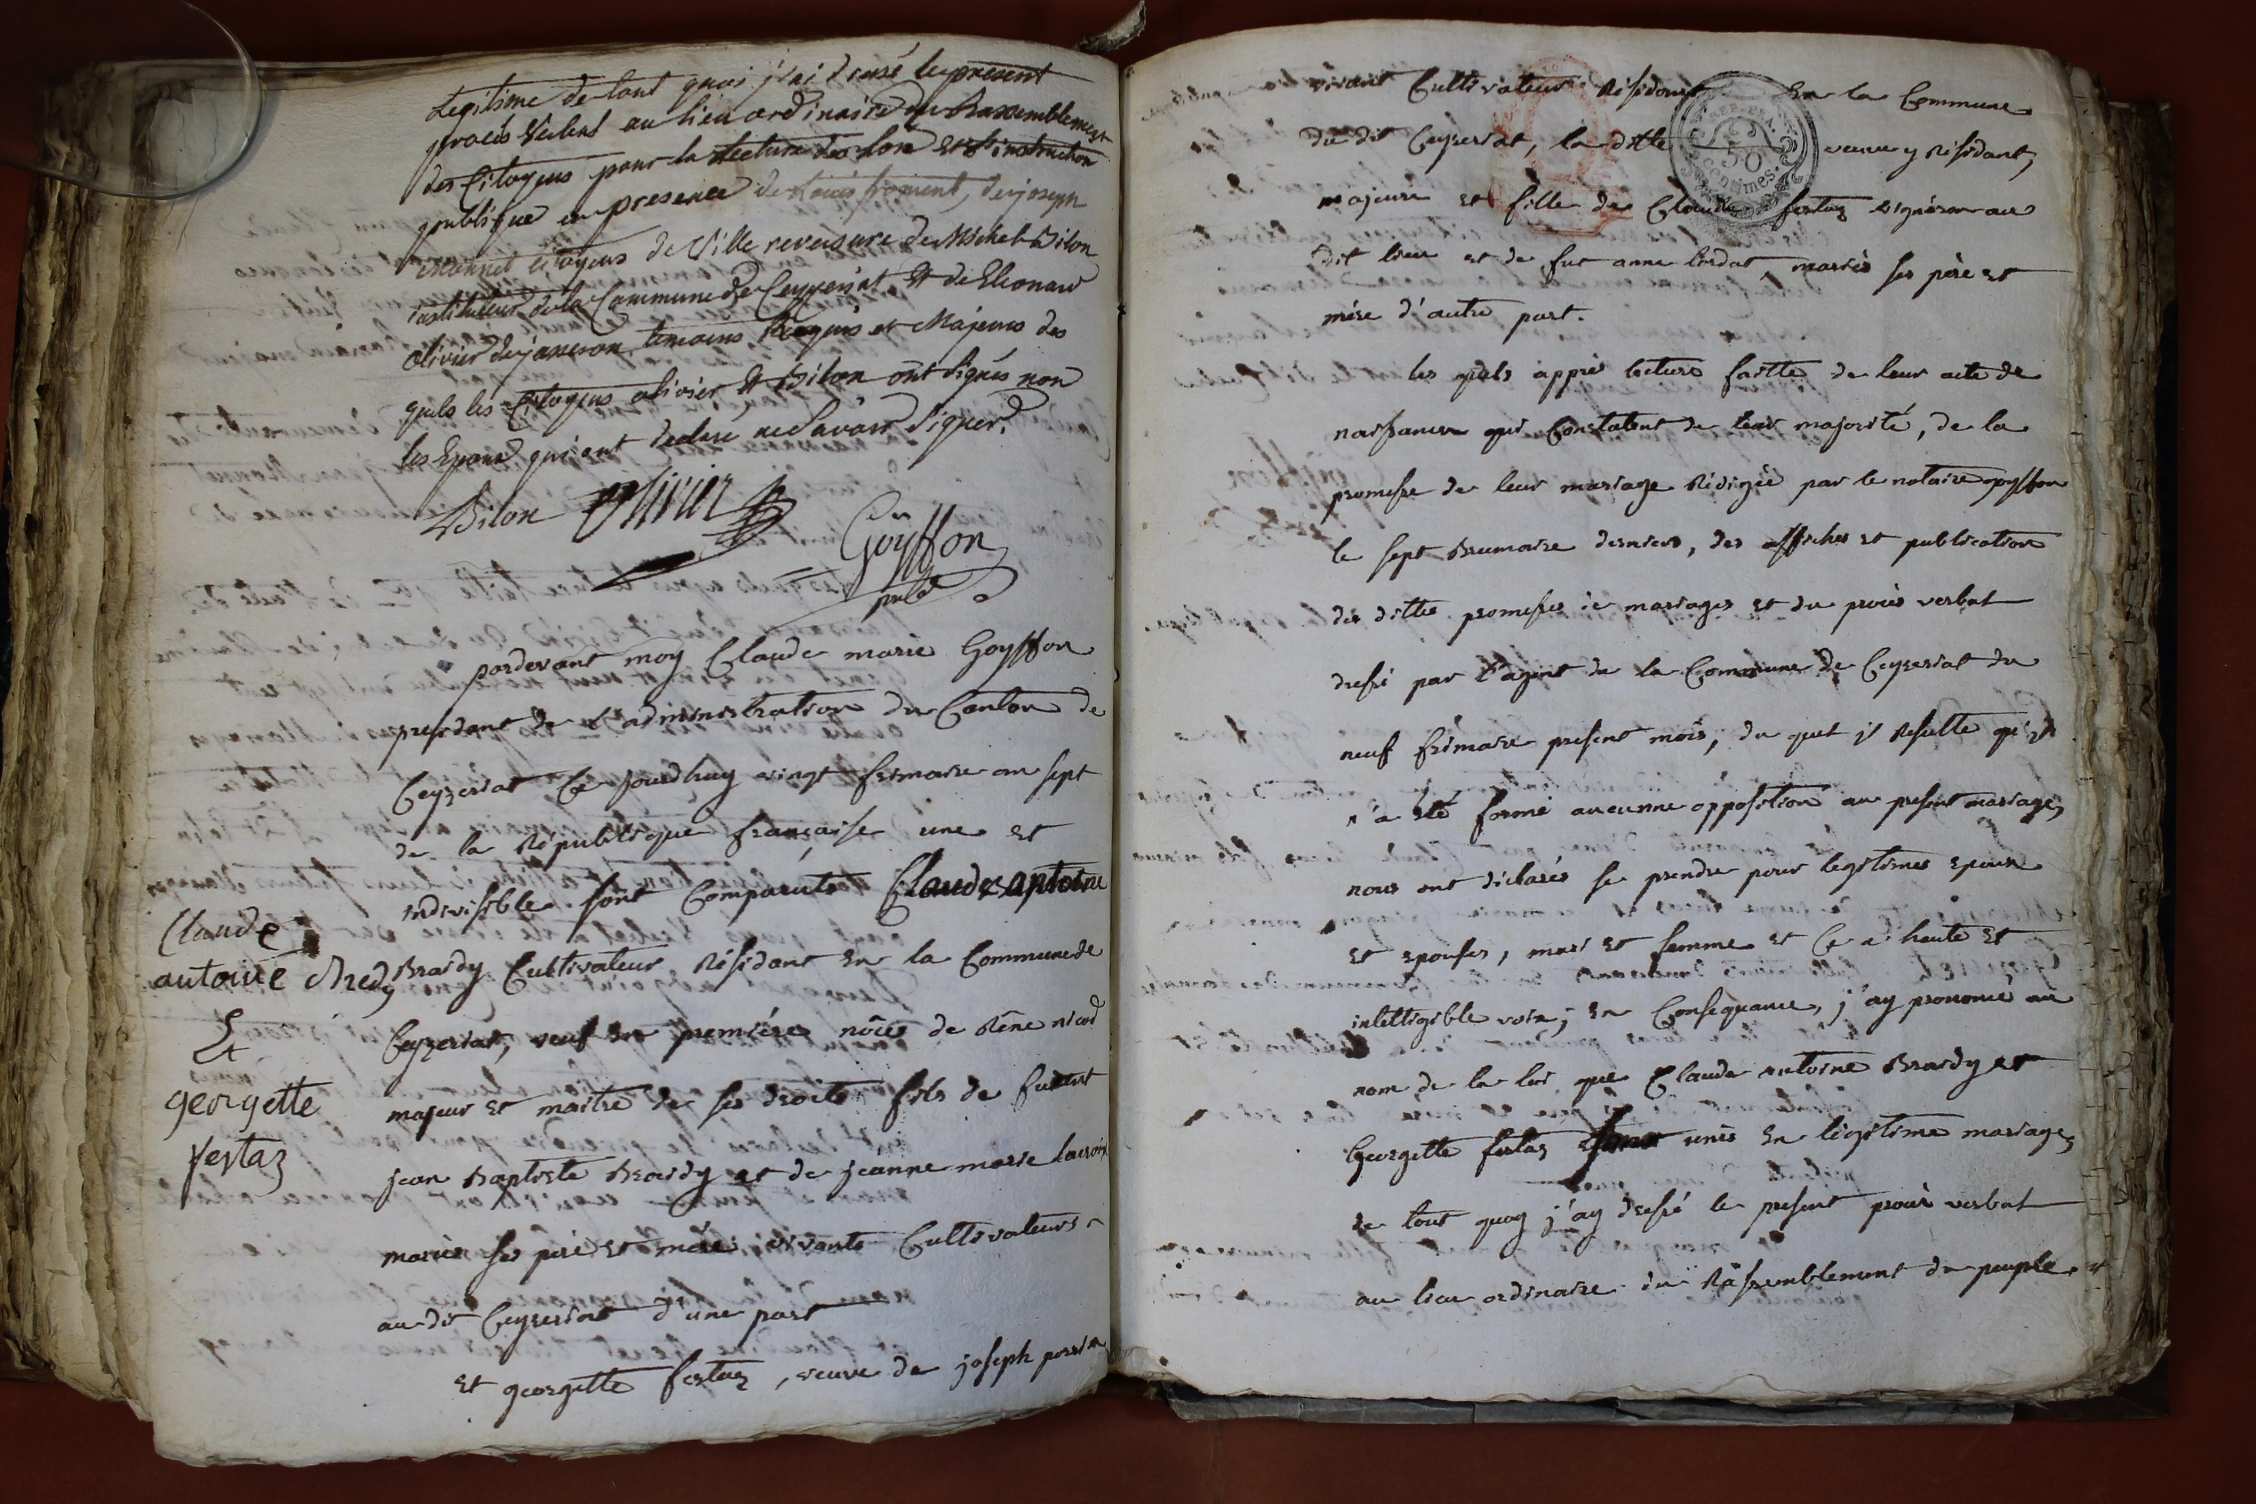 Legitime de tout quoi j'ai dressé le present
procès verbal au lieu ordinaire du Rassemblement
des Citoyens pour la lecture des lois et l'instruction
publique en presence de Louis froment, de joseph
citoyens de Ville reversure de Michel Bilon
instituteur de la Commune de Ceyzeriat et de Eleonard
Olivier de jasseron temoins Requis et Majeurs des
quels les Citoyens olivier et Bilon ont signés non
les Epoux qui ont declaré ne savoir signer.
Bilon Olivier
Goyffon
pardevant moy Claude marie Goyffon
president de l'administration du Canton de
Ceyzeriat Ce jourdhuy vingt frimaire an sept
de la République française une et
indivisible sont Comparuts Claude antoine
Claude
antoine Bredy
Et
georgette
fertaz
Brardy Cultivateur Résidant En la Commune de
Ceyzeriat, veuf en premières nôces de Rêne nicod
majeur et maitre de ses droits fils de
jean Baptiste Brardy et de jeanne marie lacroix
mariés ses père et mère vivants Cultivateurs
au dit Ceyzeriat d'une part
et georgette fertaz, veuve de joseph perrin
vivant Cultivateur Résidant En la Commune
du dit Ceyzeriat, la ditte veuve y Résidant,
50
Centimes.
majeure et fille de Claude fertaz vigneron au
dit lieu et de fue anne lordat, mariés ses père et
mère d'autre part.
les quels apprès lecture faitte de leur acte de
naissance qui Constatent de leur majorité, de la
promesse de leur mariage Rédigée par le notaire goyffon
le sept Brumaire derniers, des affiches et publication
des dittes promesses de mariages et du procès verbal
dressé par l'agent de la Commune de Ceyzeriat du
neuf frimaire present mois, du quel il Resulte qu'il
n'a été formé aucunne opposition au present mariage,
nous ont déclarés se prendre pour legitimes epoux
et epouses, mari et femme et Ce a haute et
intelligible voix; en Consequance, j'ay prononcé au
nom de la loi que Claude antoine Brardy et
Georgette fertaz sont unis en légitime mariage,
de tout quoy j'ay dressé le present procès verbal
au lieu ordinaire du Rassemblement du peuple et